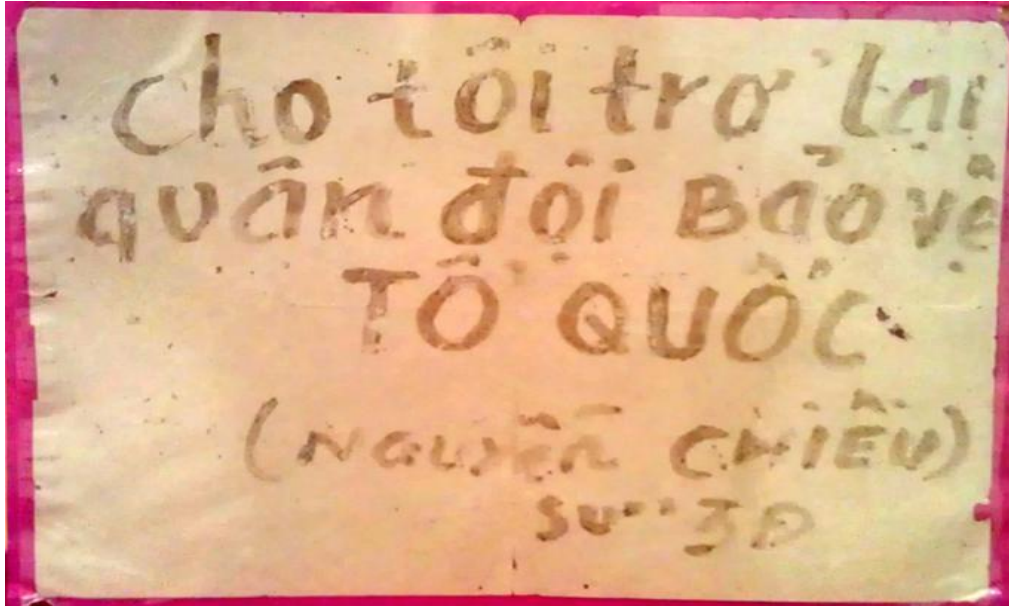 Cho tôi trở lại
quân đội Bảo vệ
TỔ QUỐC
(NGUYỄN CHIỀU)
SƯ 3Đ